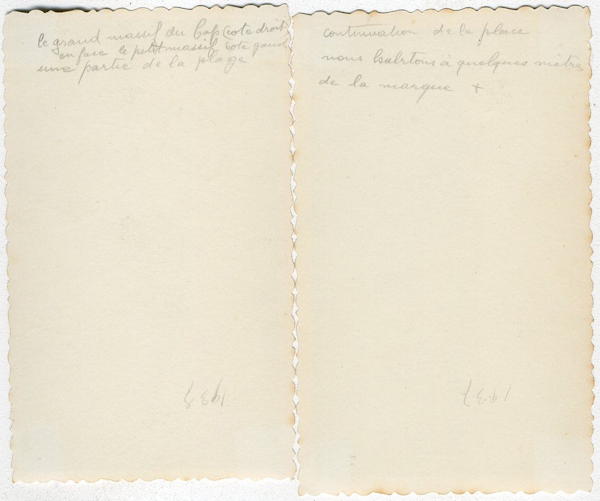 le grand massif du Cap (cote droit)
en face le petit massif cote gauche
une partie de la plage
1938
continuation de la place
nous habitons à quelques mètres
de la marque +
1937